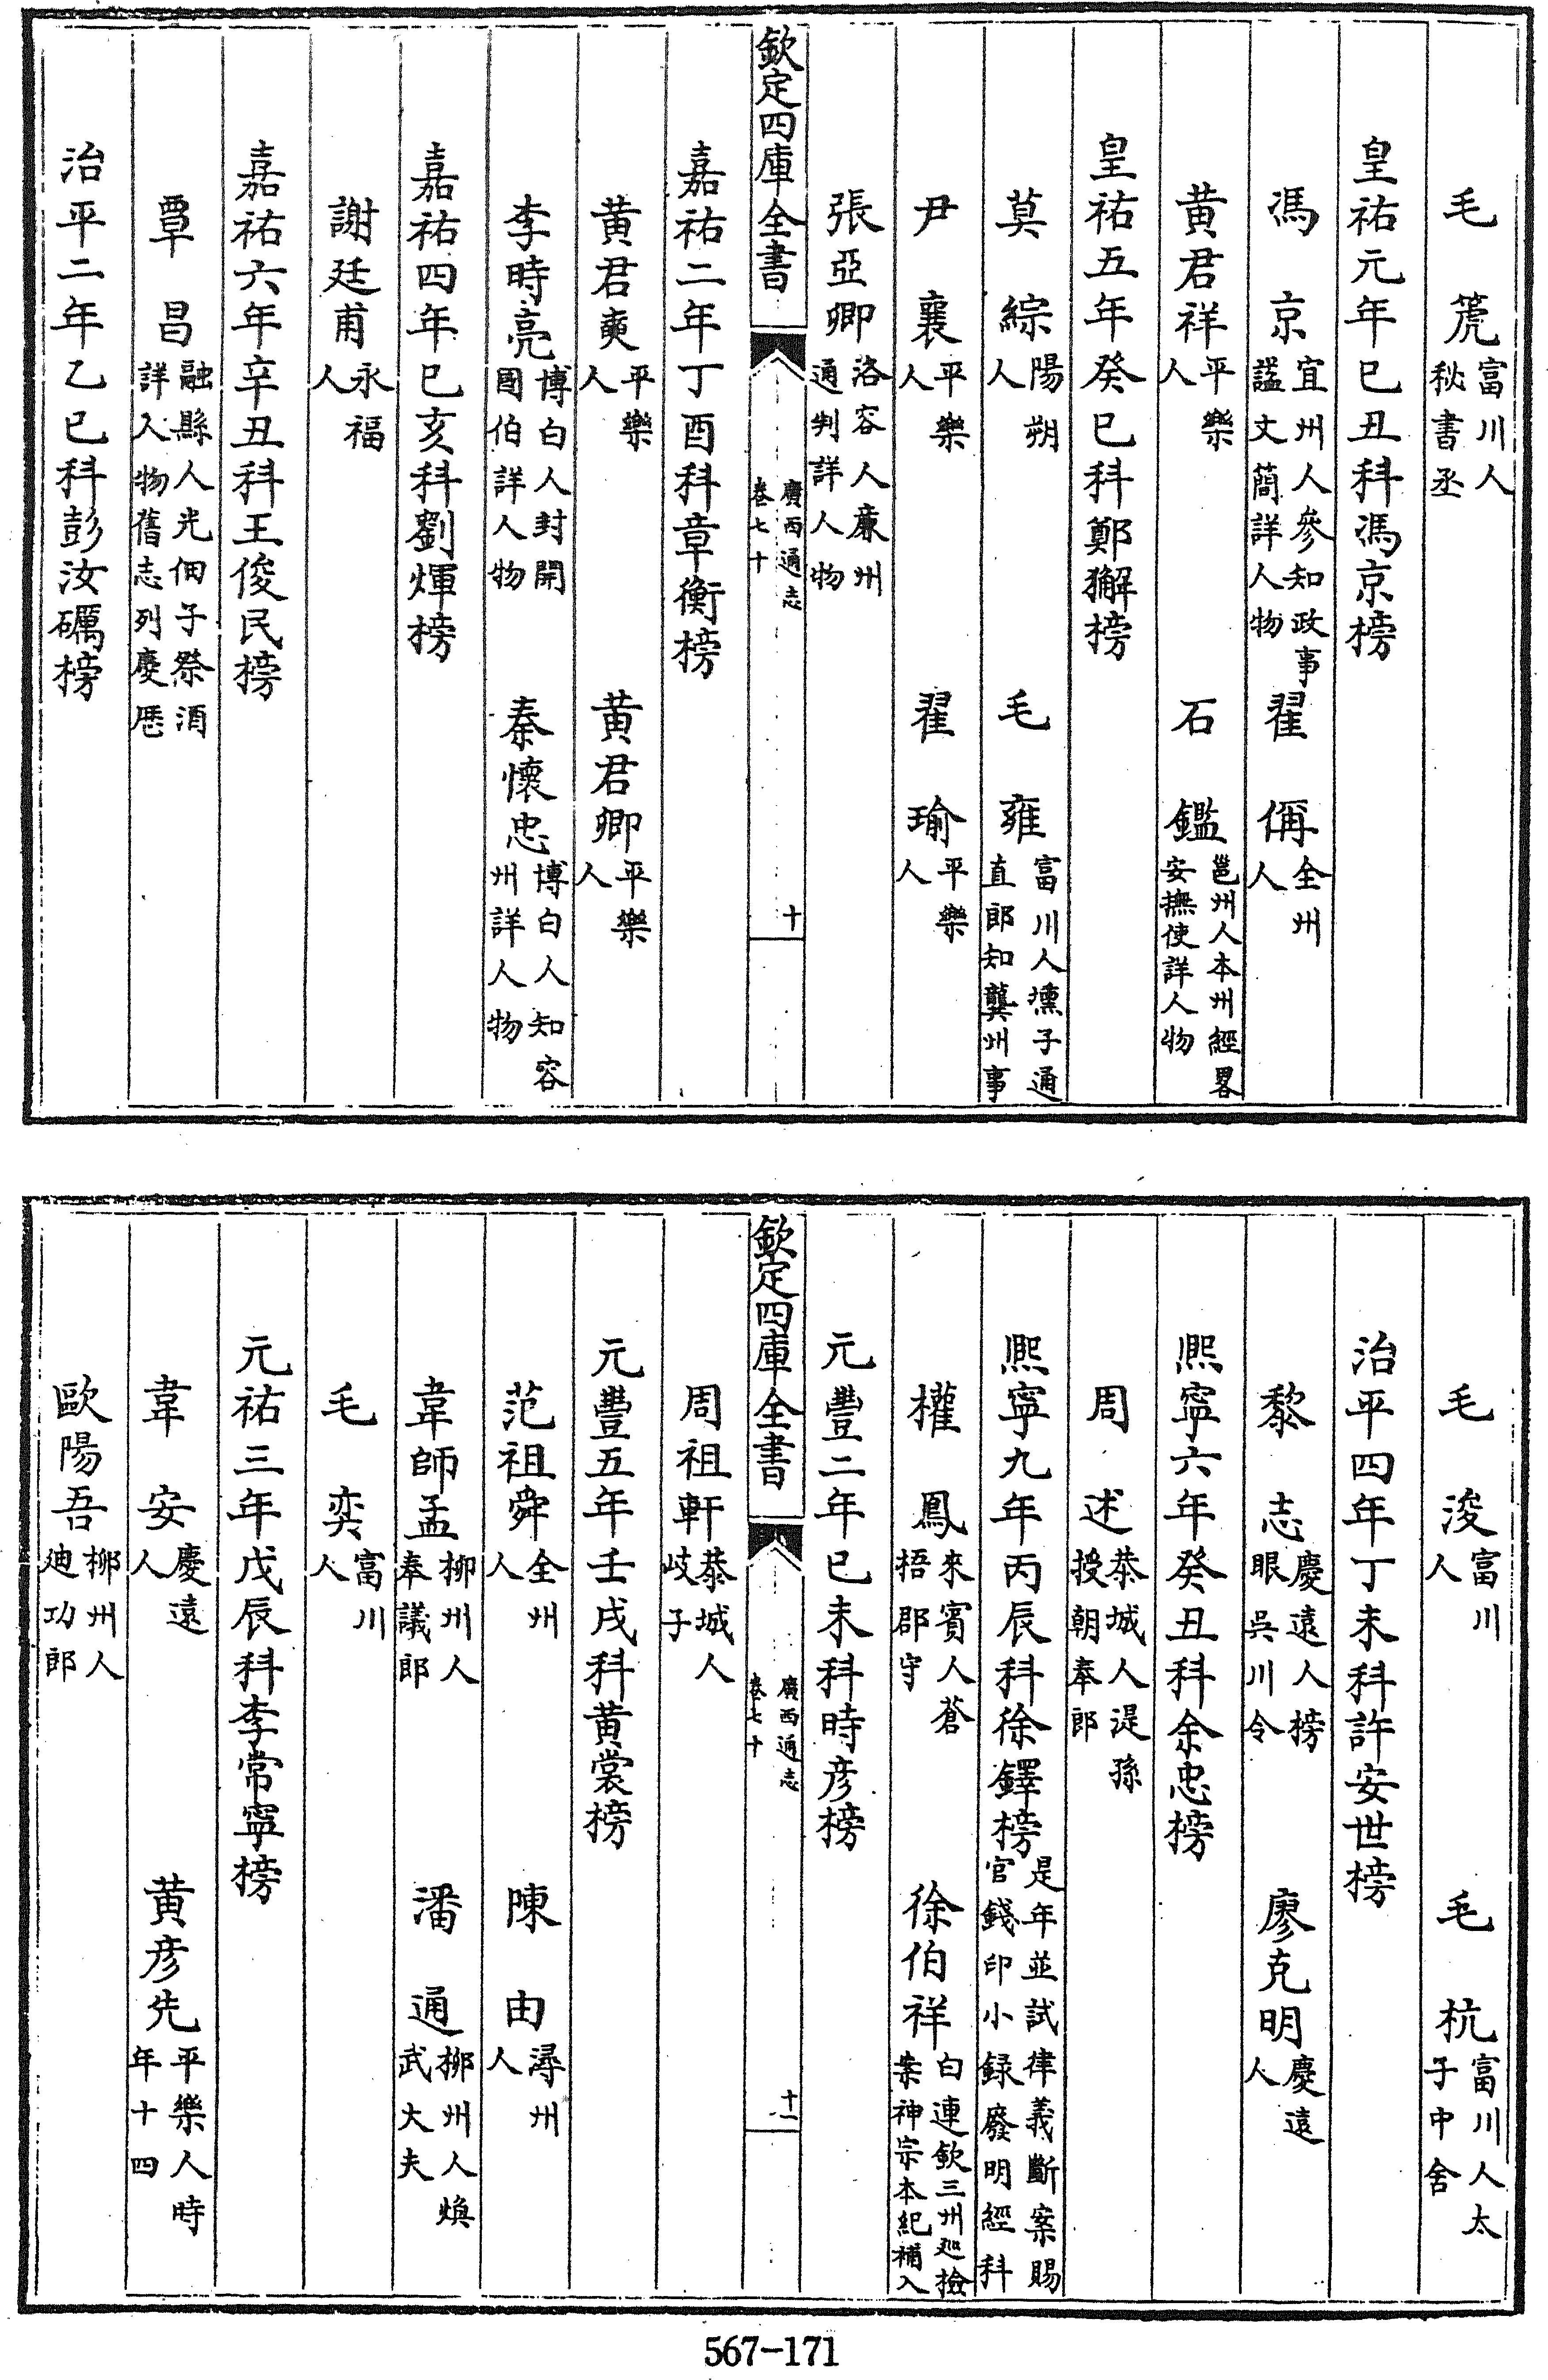 毛篪富川人秘書丞
皇祐元年巳丑科馮京榜
馮京宜州人參知政事諡文簡詳人物 翟偁全州人
黄君祥平樂人 石鑑邕州人本州經畧安撫使詳人物
皇祐五年癸巳科鄭獬榜
莫綜陽朔人 毛雍富川人㯷子通直郎知龔州事
尹襄平樂人 翟瑜平樂人
張亞卿洛容人廉州通判詳人物
欽定四庫全書 廣西通志卷七十 十
嘉祐二年丁酉科章衡榜
黄君奭平樂人 黄君卿平樂人
李時亮博白人封開國伯詳人物 秦懷忠博白人知容州詳人物
嘉祐四年巳亥科劉煇榜
謝廷甫永福人
嘉祐六年辛丑科王俊民榜
覃昌融縣人光佃子祭酒詳人物舊志列慶厯
治平二年乙巳科彭汝礪榜
毛浚富川人 毛杭富川人太子中舍
治平四年丁未科許安世榜
黎志慶遠人榜眼吳川令 廖克明慶遠人
熙寧六年癸丑科余忠榜
周述恭城人湜孫授朝奉郎
熙寧九年丙辰科徐鐸榜是年並試律義斷案賜官錢印小録廢明經科
權鳳來賓人蒼梧郡守 徐伯祥白連欽三州廵檢案神宗本紀補入
元豐二年巳未科時彦榜
欽定四庫全書 廣西通志卷七十 十一
周祖軒恭城人岐子
元豐五年壬戌科黄裳榜
范祖舜全州人 陳由潯州人
韋師孟柳州人奉議郎 潘通柳州人煥武大夫
毛奕富川人
元祐三年戊辰科李常寧榜
韋安慶遠人 黄彦先平樂人時年十四
歐陽吾柳州人廸功郎
567-171